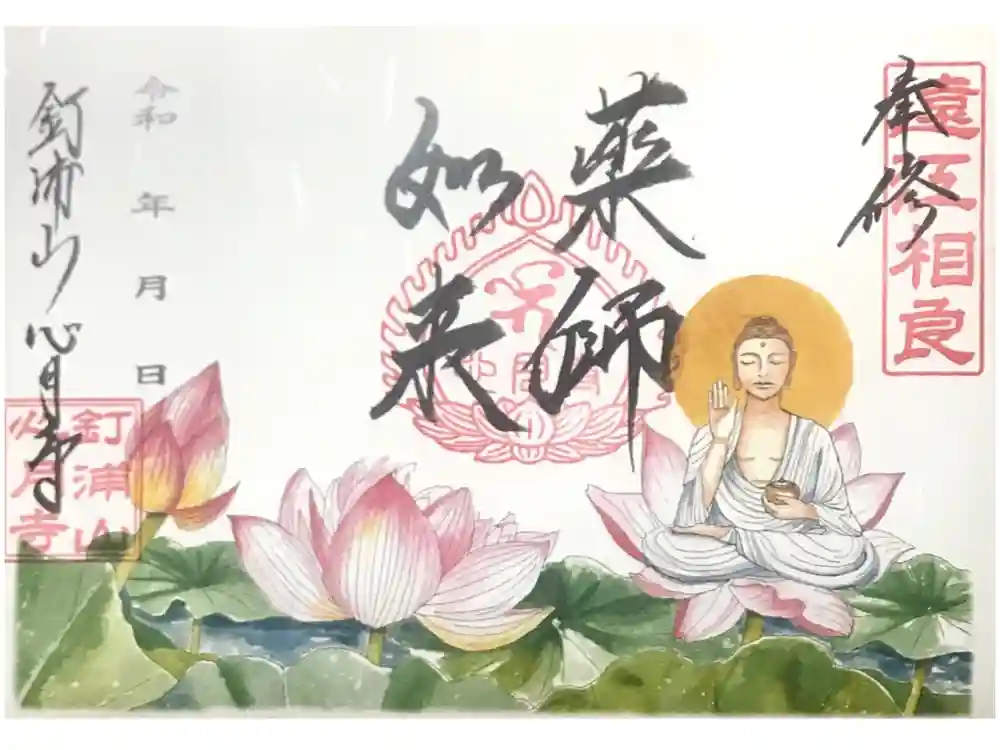 奉修
遠江相良
薬師
如来
令和　年　月　日
釘浦山心月寺
釘浦山
心月寺